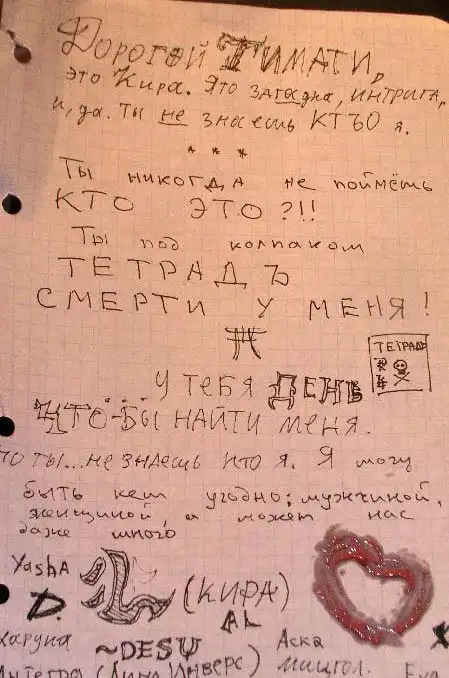 Дорогой Тимати,
это Кира. Это загадка, интрига,
и, да. Ты не знаешь КТЪО я.
* * *
Ты никогда не поймёшь
КТО ЭТО?!!
Ты под колпаком
ТЕТРАДЪ
СМЕРТИ У МЕНЯ!
ТЕТРАДЬ
У тебя ДЕНЬ
ЧТО-БЫ НАЙТИ меня.
но ты... не знаешь кто я. Я могу
быть кем угодно; мужчиной,
женщиной, а может нас
даже много
YashA
L (КИРА)
D.
AL
Харуна
~DESU
Аска
Интегра (Лина Инверс)